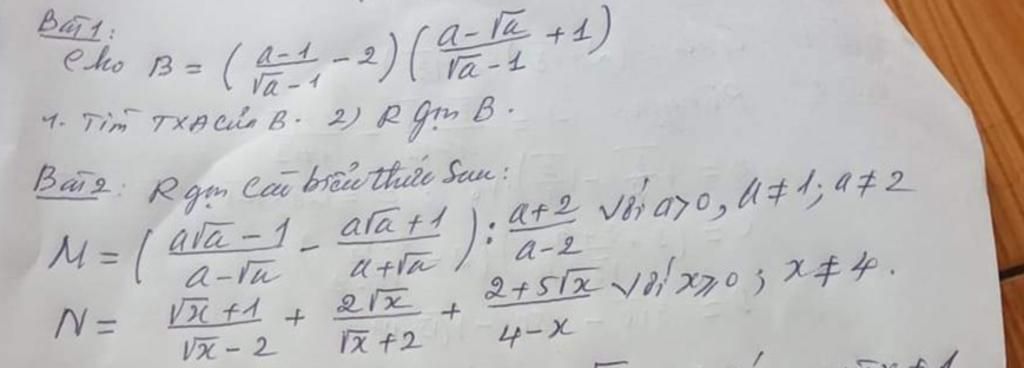 Bài 1:
Cho B = ( (a-1)/(√a-1) - 2 ) ( (a-√a)/(√a-1) + 1 )
1. Tìm TXĐ của B. 2) R gọn B.
Bài 2: R gọn các biểu thức sau:
M = ( (a√a-1)/(a-√a) - (a√a+1)/(a+√a) ) : (a+2)/(a-2) với a>0, a≠1; a≠2
N = (√x+1)/(√x-2) + (2√x)/(√x+2) + (2+5√x)/(4-x) với x≥0; x≠4.